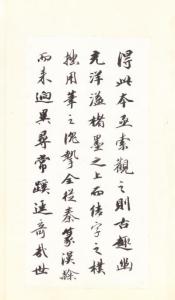 得此本亟索觀之則古趣幽
光洋溢楮墨之上而結字之樸
拙用筆之沈摯全從秦篆漢隸
而來迥異尋常蹊逕奇哉世